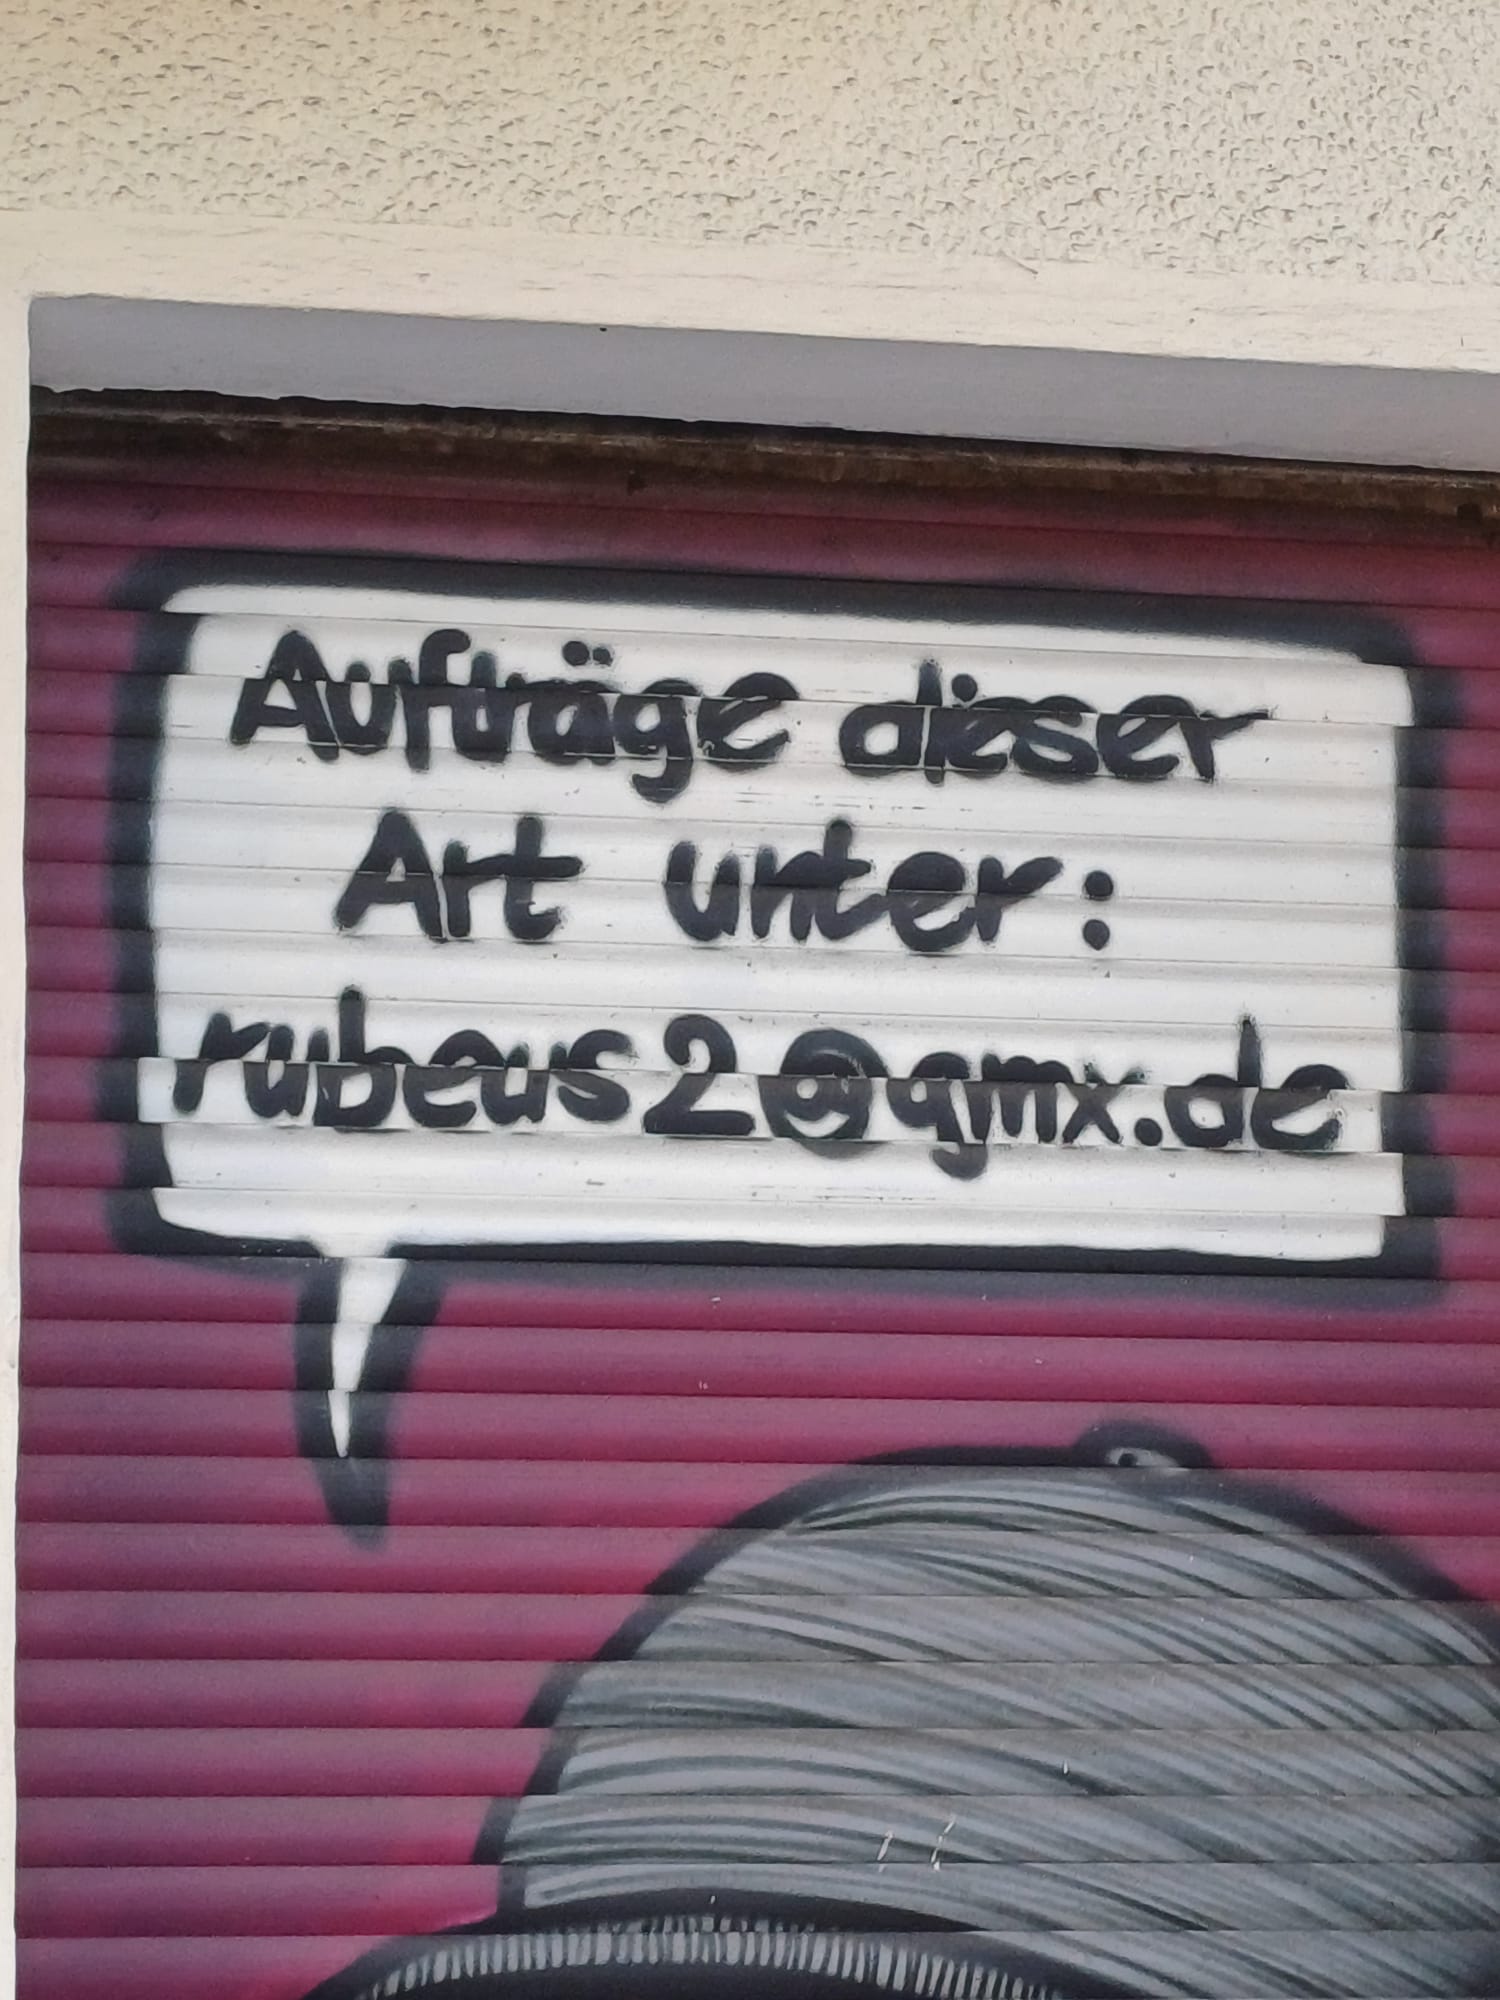 Aufträge dieser
Art unter:
rubeus2@gmx.de